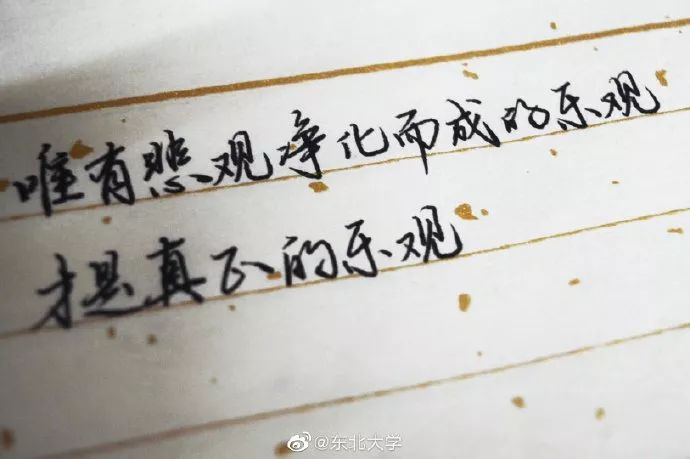 唯有悲观净化而成的乐观
才是真正的乐观
@东北大学